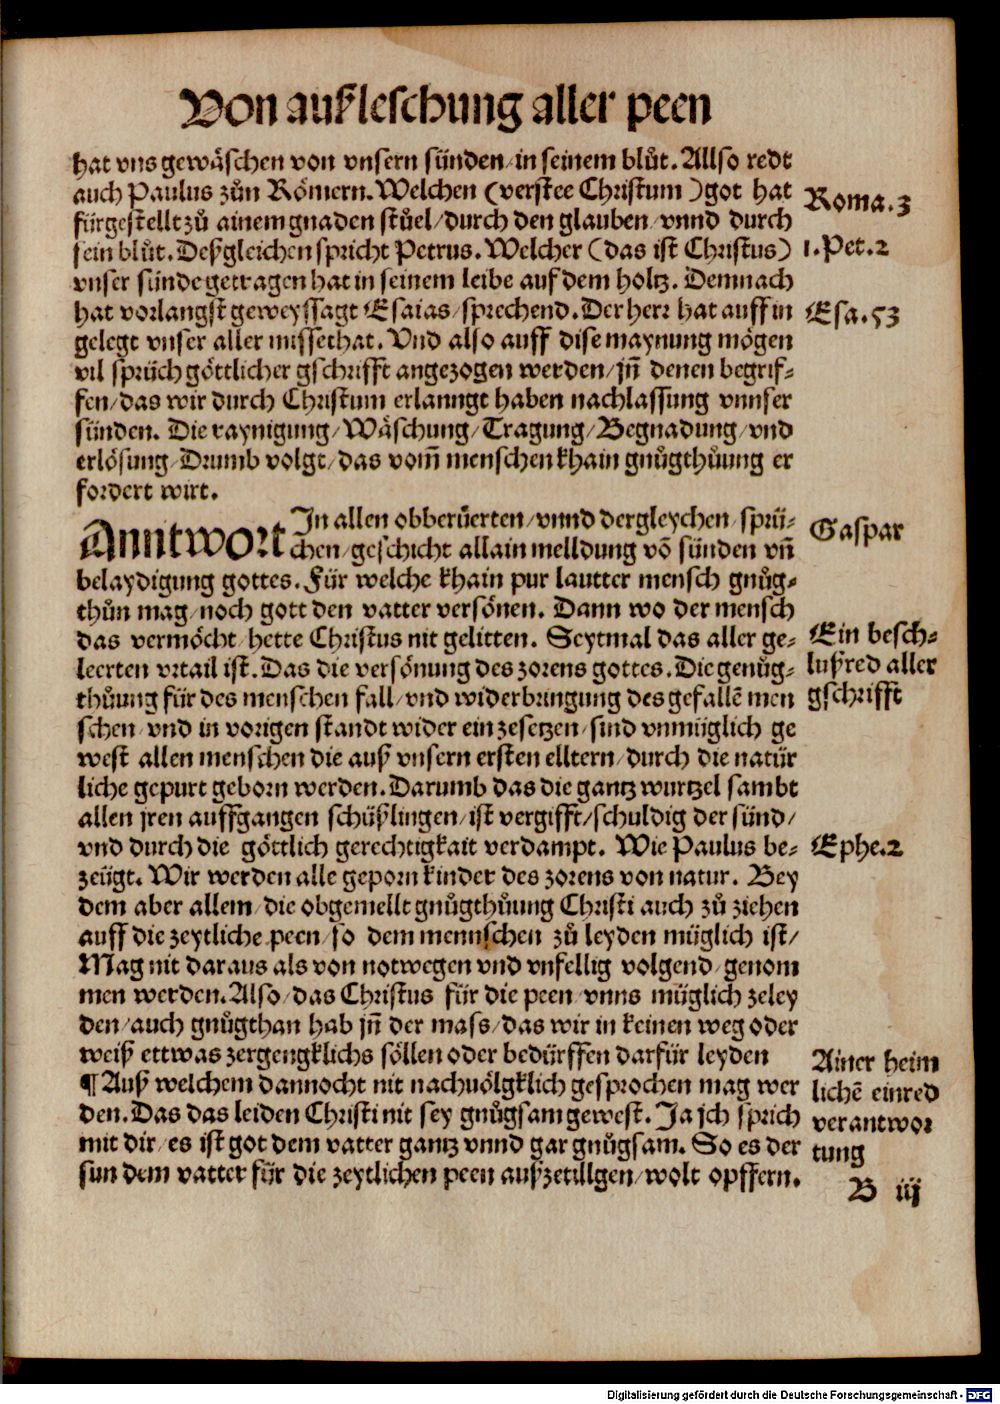 Von außleschung aller peen
hat vns gewäschen von vnsern sünden/in seinem blůt. Allso redt
auch Paulus zůn Römern. Welchen (verstee Christum) got hat
fürgestellt zů ainem gnaden stůel/durch den glauben/vnnd durch
sein blůt. Deßgleichen spricht Petrus. Welcher (das ist Christus)
vnser sünde getragen hat in seinem leibe auf dem holtz. Demnach
hat vorlangst geweyssagt Esaias/sprechend. Der herr hat auff in
gelegt vnser aller missethat. Vnd also auff dise maynung mögen
vil sprüch göttlicher gschrifft angezogen werden/jñ denen begrif-
fen/das wir durch Christum erlanngt haben nachlassung vnnser
sünden. Die raynigung/Wäschung/Tragung/Begnadung/vnd
erlösung/Drumb volgt/das vom̃ menschen khain gnůgthůung er
fordert wirt.
Roma.3
1.Pet.2
Esa.53
Anntwort In allen obberüerten/vnnd dergleychen/sprü-
chen/geschicht allain melldung võ sünden vñ
belaydigung gottes. Für welche khain pur lautter mensch gnůg-
thůn mag/noch gott den vatter versönen. Dann wo der mensch
das vermöcht/hette Christus nit gelitten. Seytmal das aller ge-
leerten vrtail ist. Das die versönung des zorens gottes. Die genůg-
thůung für des menschen fall/vnd widerbringung des gefallẽ men
schen/vnd in vorigen standt wider ein zesetzen/sind vnmüglich ge
west allen menschen die auß vnsern ersten elltern/durch die natür
liche gepurt geborn werden. Darumb das die gantz wurtzel sambt
allen jren auffgangen schüßlingen/ist vergifft/schuldig der sünd/
vnd durch die göttlich gerechtigkait verdampt. Wie Paulus be-
zeügt. Wir werden alle geporn kinder des zorens von natur. Bey
dem aber allem/die obgemellt gnůgthůung Christi auch zů ziehen
auff die zeytliche peen/so dem mennschen zů leyden müglich ist/
Mag nit daraus als von notwegen vnd vnfellig volgend/genom
men werden. Also/das Christus für die peen/vnns müglich zeley
den/auch gnůgthan hab jñ der mass/das wir in keinen weg oder
weiß ettwas zergengklichs söllen oder bedürffen darfür leyden
¶ Auß welchem dannocht nit nachuölgklich gesprochen mag wer
den. Das das leiden Christi nit sey gnůgsam gewest. Ja jch sprich
mit dir/es ist got dem vatter gantz vnnd gar gnůgsam. So es der
sun dem vatter für die zeytlichen peen außzetillgen/wolt opffern.
Gaspar
Ein besch-
lußred aller
gschrifft
Ephe.2
Ainer heim
lichẽ einred
verantwor
tung
B iij
Digitalisierung gefördert durch die Deutsche Forschungsgemeinschaft - DFG